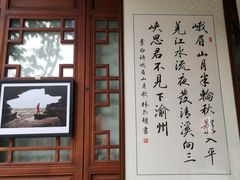 峨眉山月半輪秋影入平
羌江水流夜發清溪向三
峡思君不見下渝州
李白詩峨眉山月歌 林 書